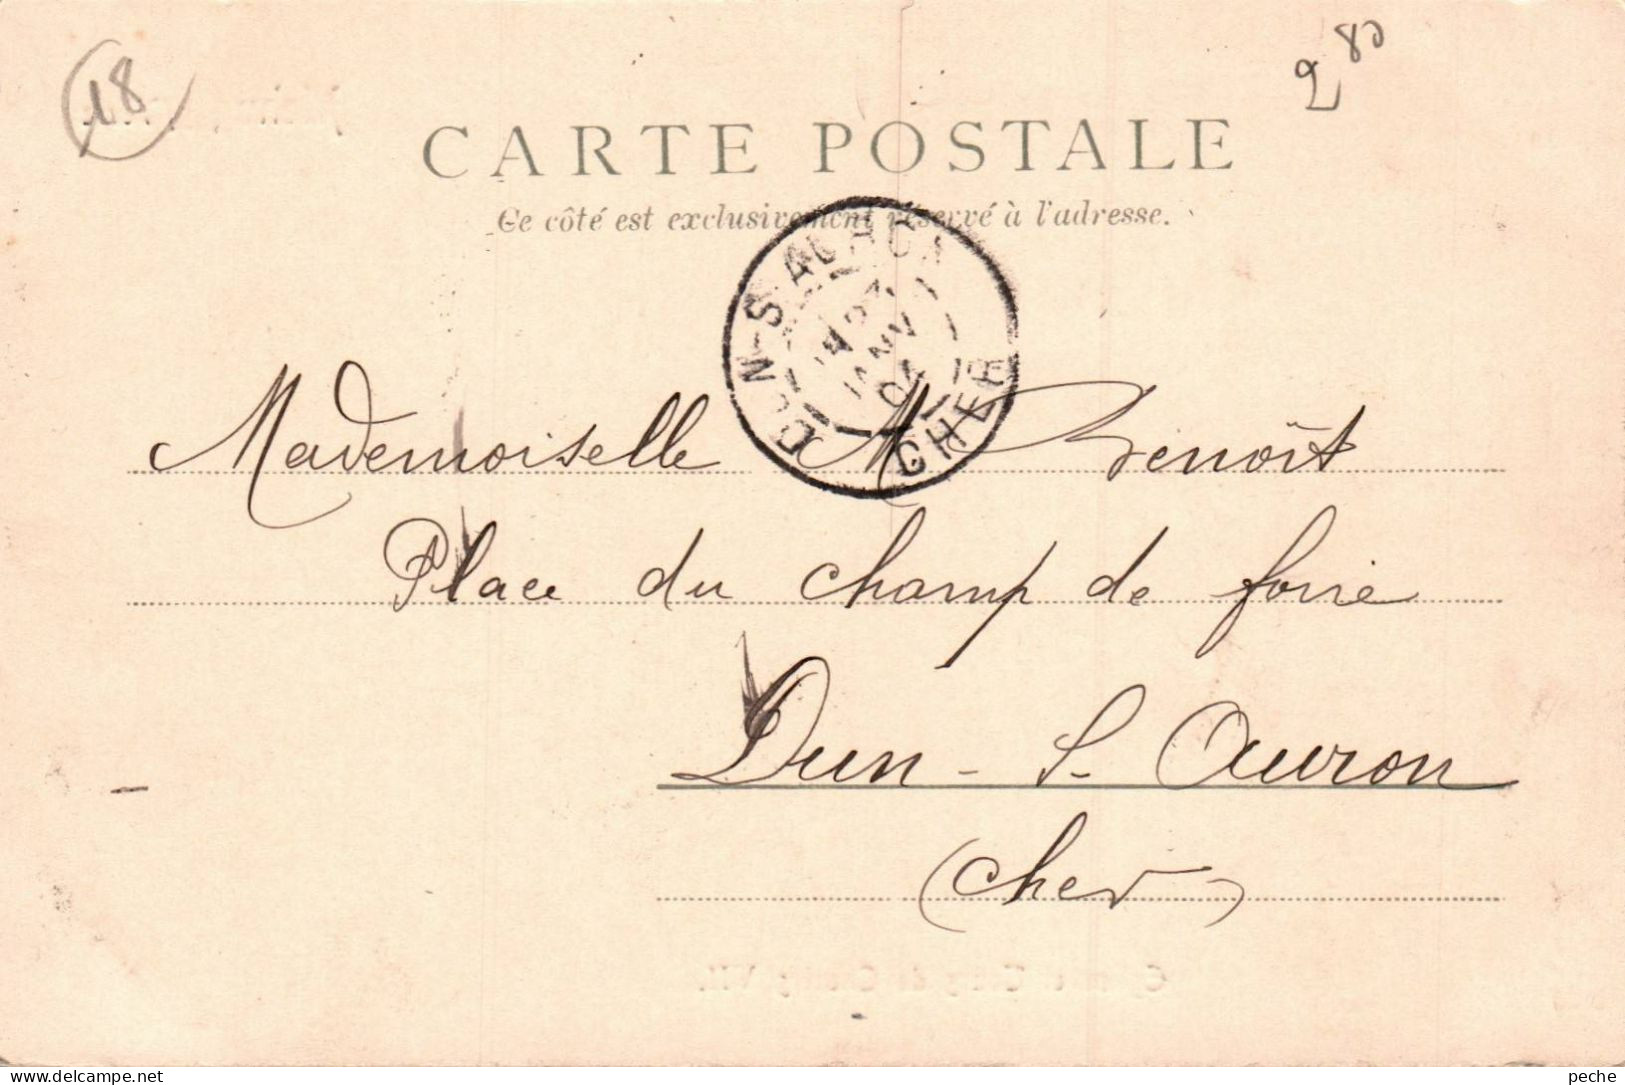 18
2 80
CARTE POSTALE
Ce côté est exclusivement réservé à l'adresse.
DUN-S-AURON
27
JANV
04
CHER
Mademoiselle M Benoît
Place du champ de foire
Dun - S. Auron
(Cher)
www.delcampe.net
peche